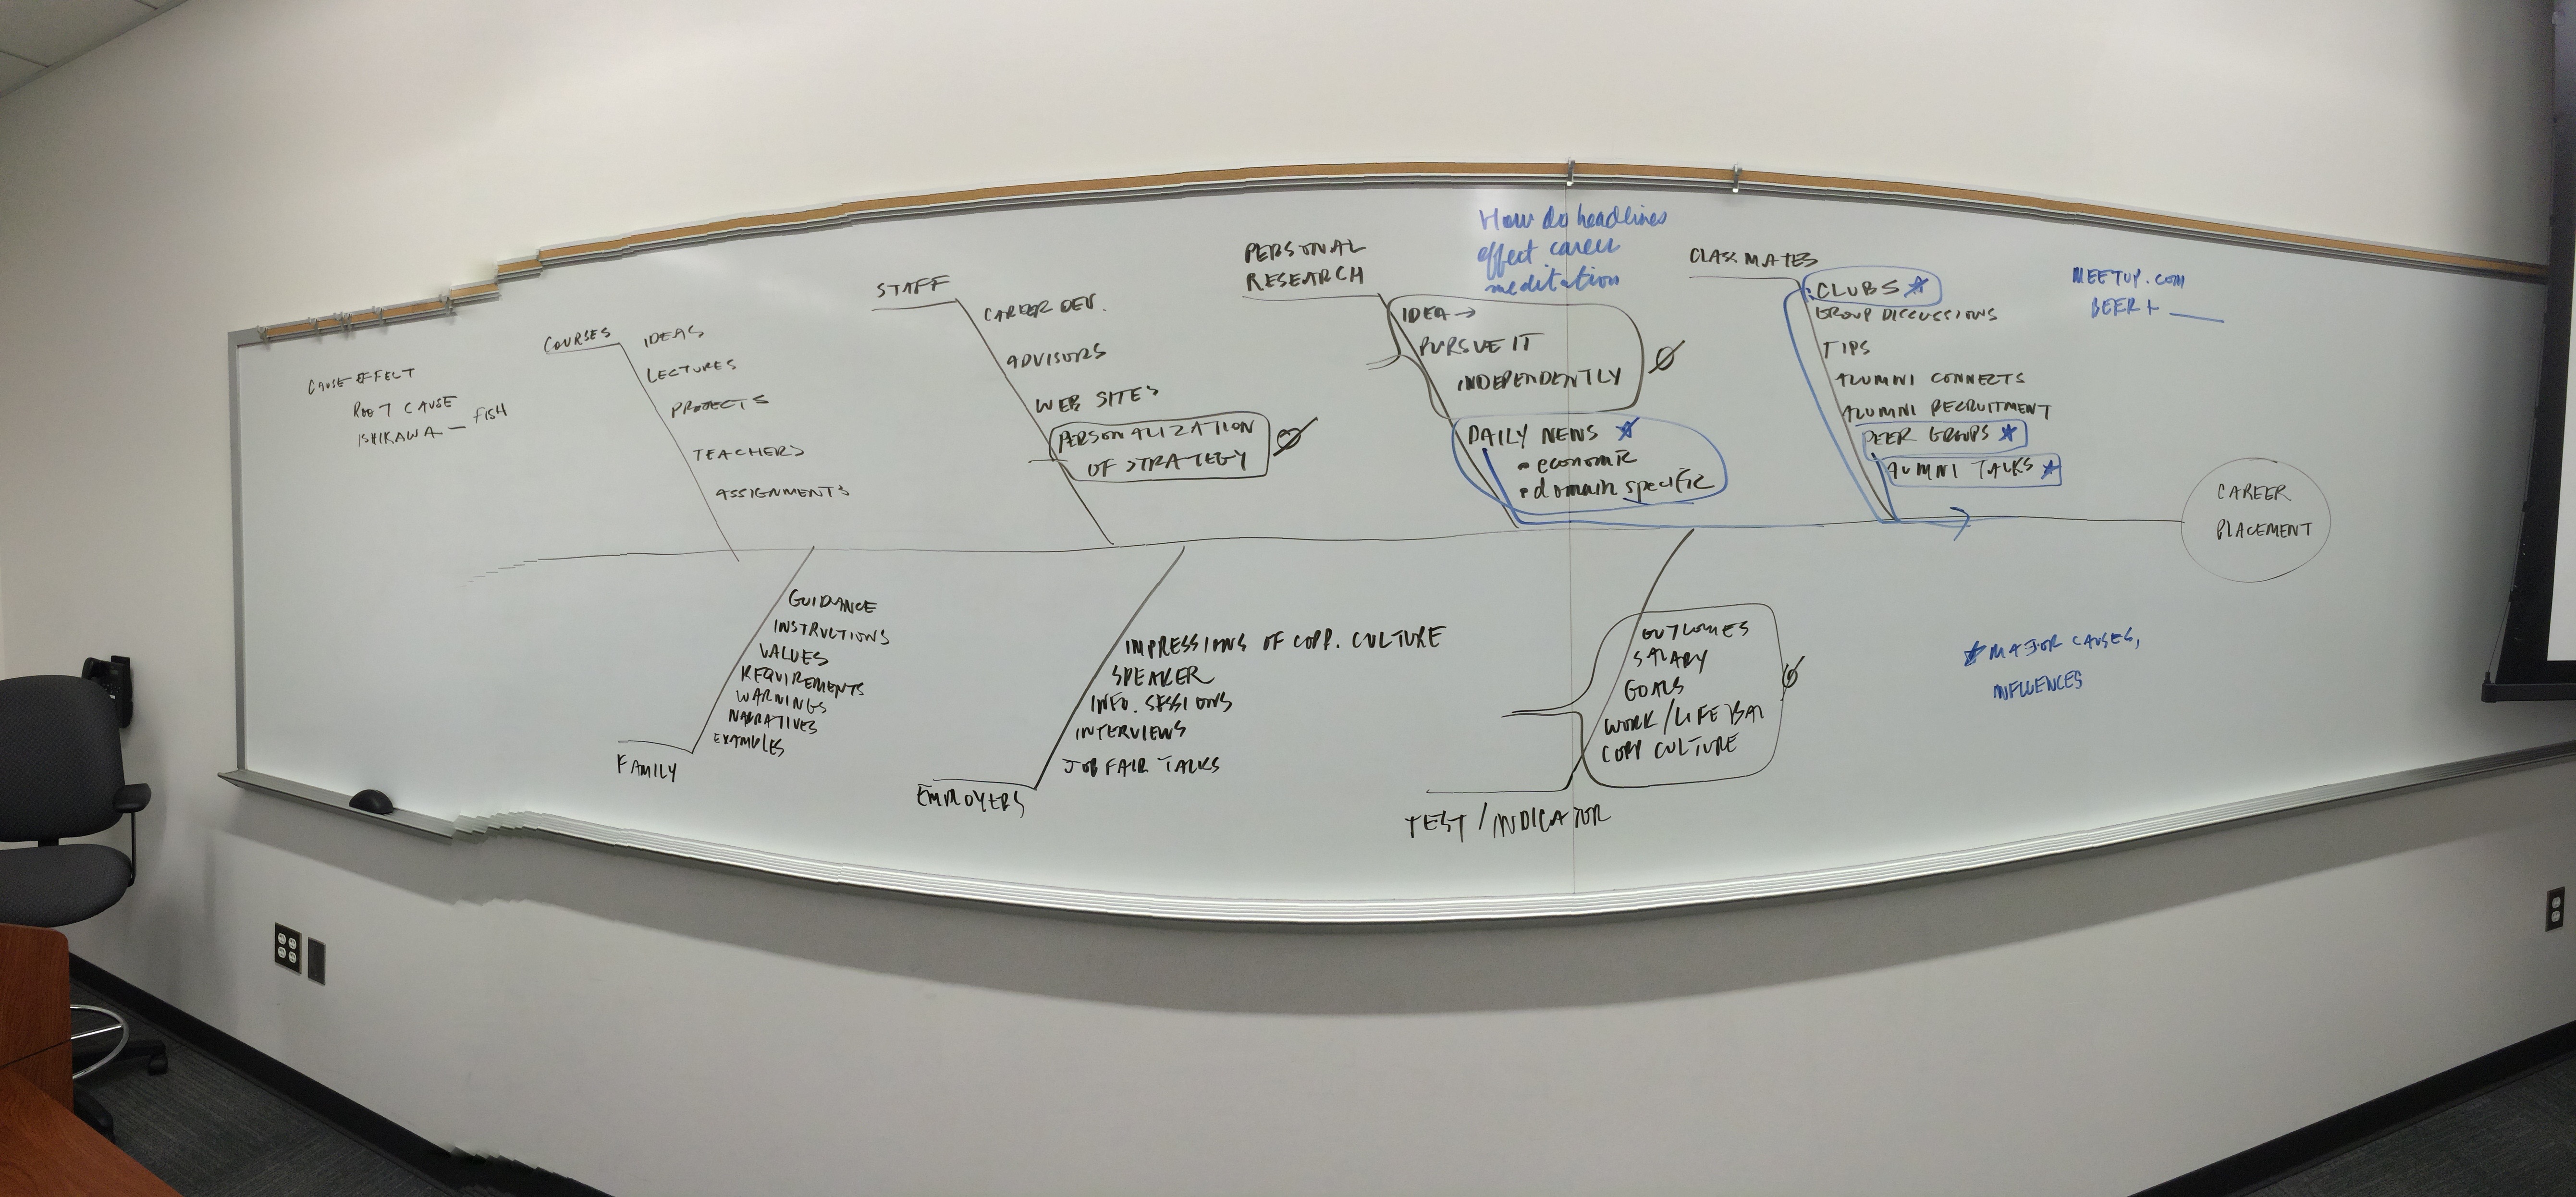 CAUSE EFFECT
ROOT CAUSE
ISHIKAWA — FISH
COURSES
IDEAS
LECTURES
PROJECTS
TEACHERS
ASSIGNMENTS
STAFF
CAREER DEV.
ADVISORS
WEB SITES
PERSONALIZATION
OF STRATEGY
PERSONAL
RESEARCH
How do headlines
effect career
meditation
IDEA →
PURSUE IT
INDEPENDENTLY
DAILY NEWS
• economic
• domain specific
CLASSMATES
CLUBS
GROUP DISCUSSIONS
TIPS
ALUMNI CONNECTS
ALUMNI RECRUITMENT
PEER GROUPS
ALUMNI TALKS
MEETUP.COM
BEER + ___
CAREER
PLACEMENT
GUIDANCE
INSTRUCTIONS
VALUES
REQUIREMENTS
WARNINGS
NARRATIVES
EXAMPLES
FAMILY
IMPRESSIONS OF CORP. CULTURE
SPEAKER
INFO. SESSIONS
INTERVIEWS
JOB FAIR TALKS
EMPLOYERS
OUTCOMES
SALARY
GOALS
WORK/LIFE BAL
CORP CULTURE
TEST/INDICATOR
★ MAJOR CAUSES,
INFLUENCES